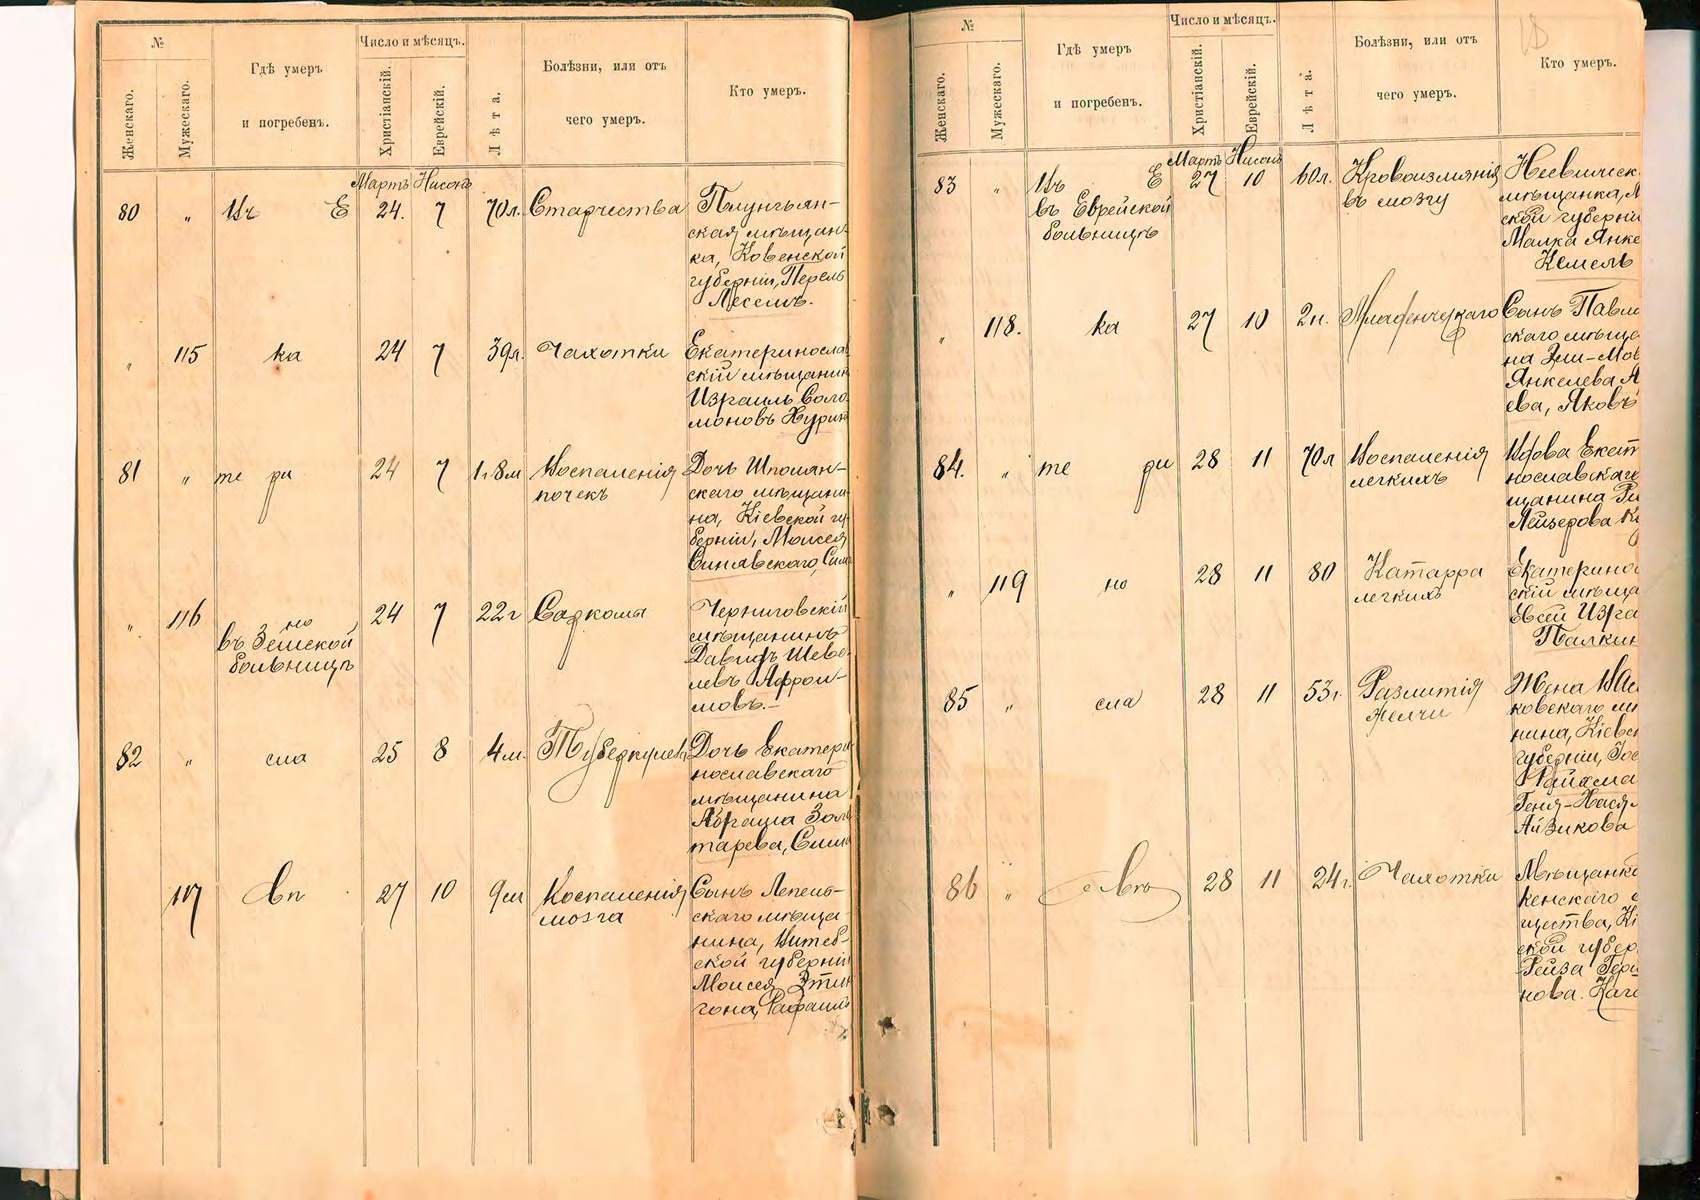 №
Женскаго.
Мужескаго.
Гдѣ умеръ
и погребенъ.
Число и мѣсяцъ.
Христіанскій.
Еврейскій.
Лѣта.
Болѣзни, или отъ
чего умеръ.
Кто умеръ.
Мартъ Нисонъ
80 " Въ Е 24. 7 70л. Старчества
Плунгьян-
ская мѣщан-
ка, Ковенской
губерніи, Перель
Лесемъ.
" 115 ка 24 7 39л. Чахотки
Екатеринослав
скій мѣщанин
Израиль Соло
моновъ Нурин
81 " те ри 24 7 1г.8м Воспаленія
почекъ
Дочь Шполян-
скаго мѣщани-
на, Кіевской гу-
берніи, Моисея
Синявскаго, Сим
" 116 но 24 7 22г Саркомы
въ Земской
больницѣ
Черниговскій
мѣщанинъ
Давидъ Шеве-
левъ Афрои-
мовъ.-
82 " сла 25 8 4м. Туберкулеза
Дочь Екатери-
нославскаго
мѣщанина
Абрама Золо
тарева, Сима
117 вѣ 27 10 9м Воспаленія
мозга
Сынъ Лепель-
скаго мѣща-
нина, Витеб-
ской губерніи
Моисея Этин
гона, Рафаилъ
№
Женскаго.
Мужескаго.
Гдѣ умеръ
и погребенъ.
Число и мѣсяцъ.
Христіанскій.
Еврейскій.
Лѣта.
Болѣзни, или отъ
чего умеръ.
Кто умеръ.
Мартъ Нисонъ
83 " Въ Е 27 10 60л. Кровоизліянія
въ Еврейской
больницѣ
въ мозгу
мѣщанка, М
ской губерні
Малка Янке
Кемель
" 118. ка 27 10 2н. Младенческаго
Сынъ Павло
скаго мѣща
на Эли-Мов
Янкелева А
ева, Яковъ
84. " те ри 28 11 70л Воспаленія
легкихъ
Вдова Екат
нославскаго
щанина Ри
Лейзерова К
" 119 но 28 11 80 Катарра
легкихъ
Екатерино
скій мѣща
Евсей Изра
Палкин
85 " сла 28 11 53г. Разлитія
желчи
Жена Вас
ковскаго мѣ
нина, Кіевс
губерніи,
Геня-Нася
Айзикова
86 " вѣ 28 11 24г. Чахотки
Мѣщанка
кенскаго о
щества, Кі
ской губер
Рейза Гер
нова. Каго